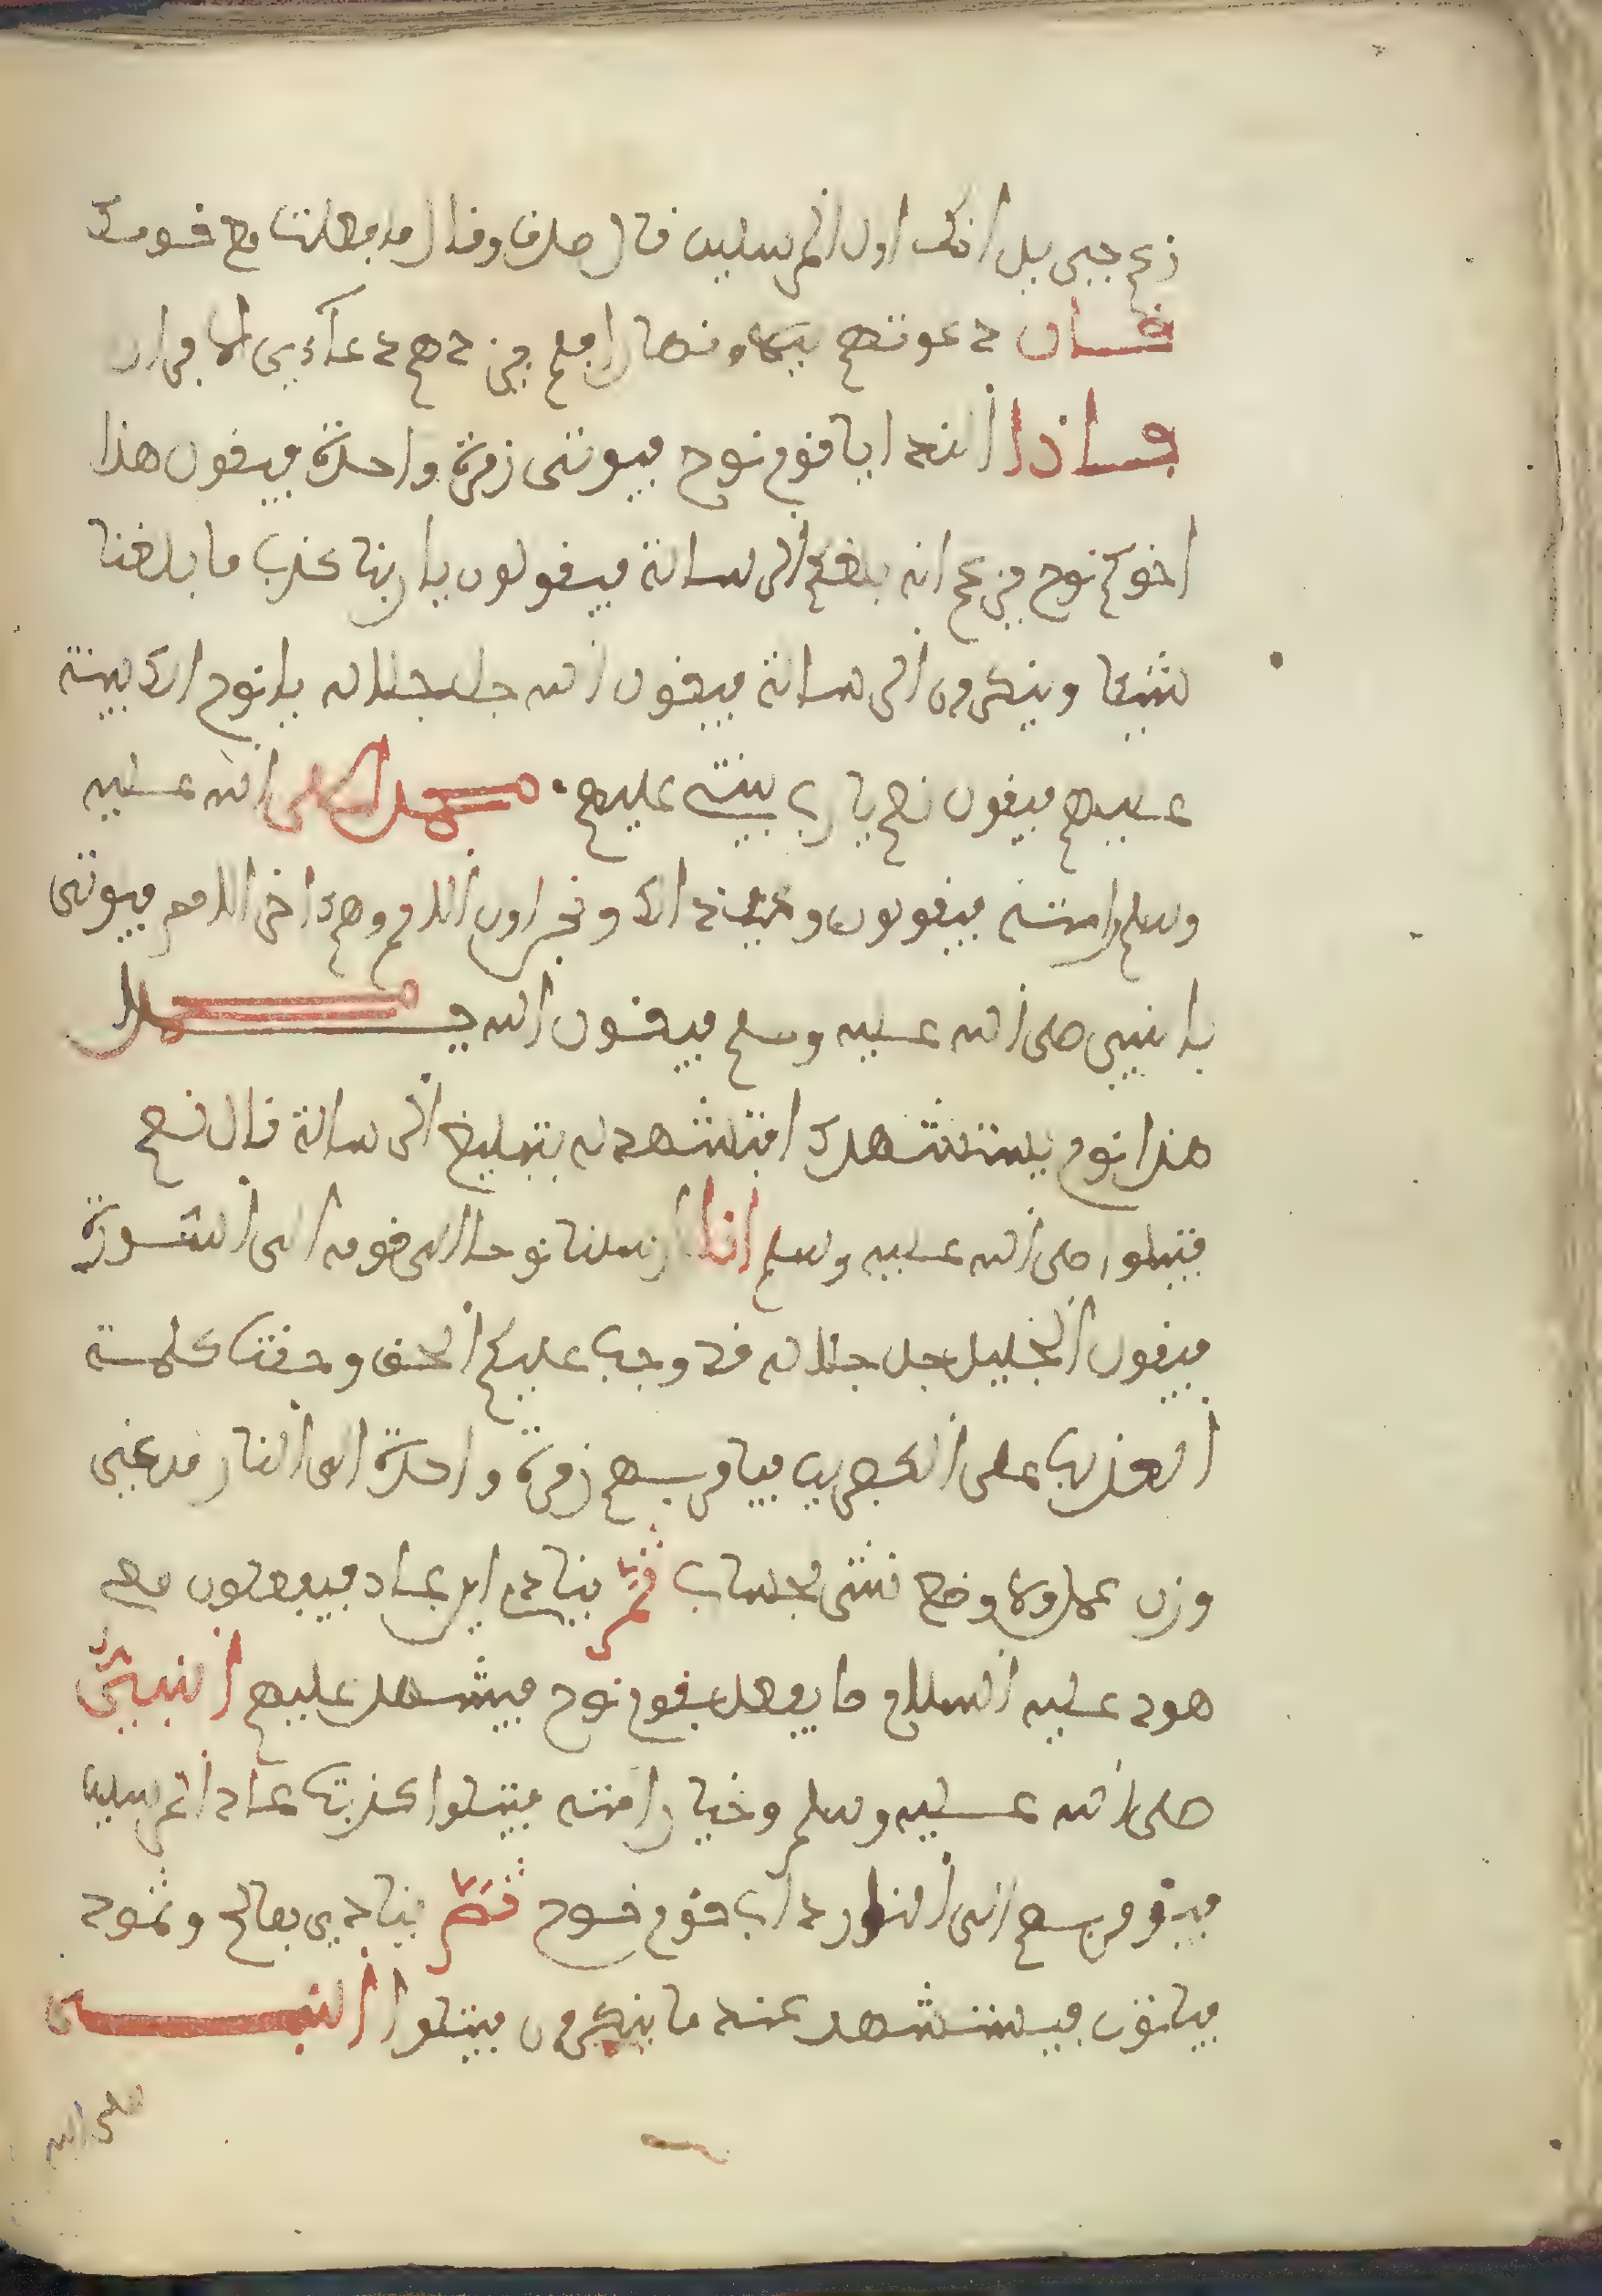 زعم جبريل انك اول المرسلين قال صدق وقال ما فعلت مع قومك
قال دعوتهم ليلا ونهارا فلم يزدهم دعاءي الا فرارا
فاذا النداء يا قوم نوح فيوتى زمرة واحدة فيقول هذا
اخوكم نوح يزعم انه بلغكم الرسالة فيقولون يا ربنا كذب ما بلغنا
شيئا وينكرون الرسالة فيقول الله جل جلاله يا نوح الك بينة
عليهم فيقول نعم يا رب بينتي عليهم محمد صلى الله عليه
وسلم وامته فيقولون وكيف ذلك ونحن اول الامم وهم اخر الامم فيوتى
بالنبي صلى الله عليه وسلم فيقول الله يا محمد
هذا نوح يستشهدك افتشهد له بتبليغ الرسالة قال نعم
فيتلوا صلى الله عليه وسلم انا ارسلنا نوحا الى قومه الى السورة
فيقول الجليل جل جلاله قد وجب عليكم الحق وحقت كلمة
العذاب على الكفرين فيامر بهم زمرة واحدة الى النار من غير
وزن عمل ولا وضع شي لحساب ثم ينادي اين عاد فيفعلون مع
هود عليه السلام ما يفعل بقوم نوح فيشهد عليهم النبيء
صلى الله عليه وسلم وخيار امته فيتلوا كذبت عاد المرسلين
فيومر بهم الى النار داب قوم نوح ثم ينادي يصالح وثمود
فياتون فيستشهد عند ما ينكرون فيتلوا النبي
صلى الله